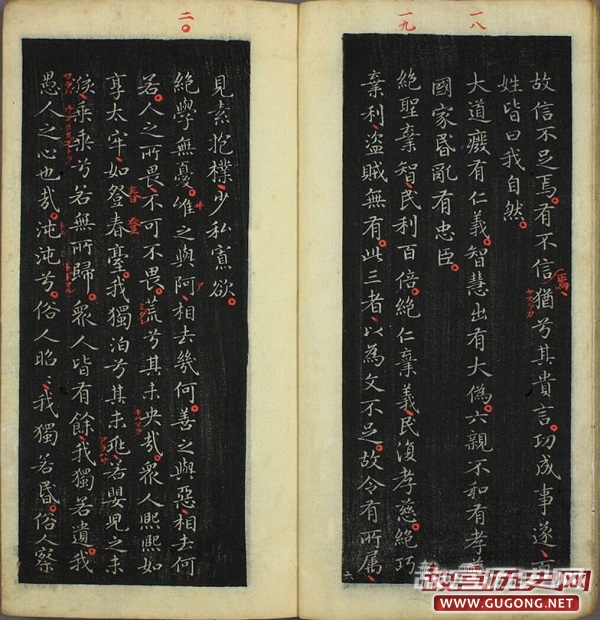 一八
一九
故信不足焉有不信猶兮其貴言功成事遂百
姓皆曰我自然
大道癈有仁義智慧出有大偽六親不和有孝
國家昬亂有忠臣
絕聖棄智民利百倍絕仁棄義民復孝慈絕巧
棄利盜賊無有此三者以為文不足故令有所属
六
二〇
見素抱樸少私寡欲
絕學無憂唯之與阿相去幾何善之與惡相去何
若人之所畏不可不畏荒兮其未央哉衆人熙熙如
享太牢如登春臺我獨泊兮其未兆若嬰兒之未
孩乘乘兮若無所歸衆人皆有餘我獨若遺我
愚人之心也哉沌沌兮俗人昭〻我獨若昬俗人察
故宫历史网
WWW.GUGONG.NET